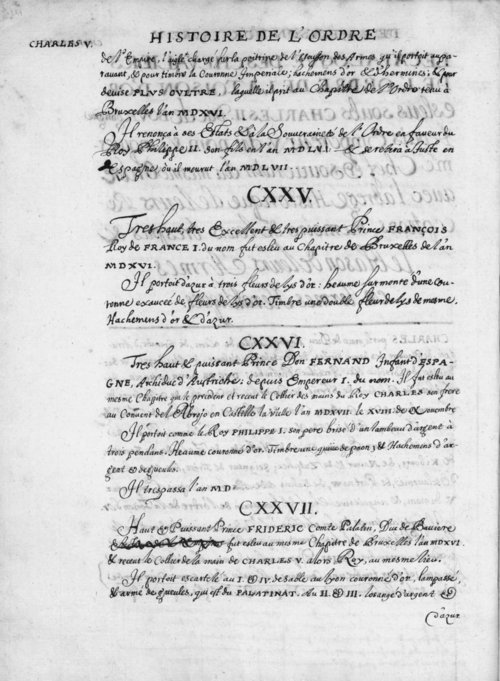 HISTOIRE DE L'ORDRE
CHARLES V.
de l'Empire, l'aigle chargé sur la poitrine de l'escusson des Armes qu'il portoit aupa-
ravant, & pour timbre la Couronne Imperiale; hachemens d'or & d'hermines, & pour
devise PLVS OVLTRE, laquelle il prit au Chapitre de l'Ordre tenu à
Bruxelles l'an MDXVI.
Il renonça à ses Estats & à la Souveraineté de l'Ordre en faveur du
Roy Philippe II. son fils en l'an MDLVI & se retira à Juste en
Espagne où il mourut l'an MDLVII.
CXXV.
Tres haut, tres Excellent & tres puissant Prince FRANÇOIS
Roy de FRANCE I. du nom fut esleu au Chapitre de Bruxelles de l'an
MDXVI.
Il portoit d'azur a trois fleurs de lys d'or: heaume surmonté d'une cou-
ronne exaucée de fleurs de lys d'or. Timbre une double fleur de lys de mesme.
Hachemens d'or & d'azur.
CXXVI.
Tres haut & puissant Prince Don FERNAND Infant d'ESPA-
GNE, Archiduc d'Austriche; depuis Empereur I. du nom. Il fut esleu au
mesme Chapitre que le precedent et receut le Collier des mains du Roy CHARLES son frere
au Convent de l'Abrojo en Castille la Vieille l'an MDXVII. le XVIII. de Novembre
Il portoit comme le Roy PHILIPPE I. son pere brisé d'un lambeau d'argent à
trois pendans. Heaume couronné d'or. Timbre une queüe de paon; & Hachemens d'ar-
gent & de gueules.
Il trespassa l'an MD
CXXVII.
Haut & Puissant Prince FRIDERIC Comte Palatin, Duc de Baviere
fut esleu au mesme Chapitre de Bruxelles l'an MDXVI
& receut le Collier de la main de CHARLES V. alors Roy, au mesme lieu.
Il portoit escartelé au I. & IV. de sable au lyon couronné d'or, lampassé
& armé de gueules, qui est du PALATINAT. Au II. & III. losangé d'argent &
d'azur.